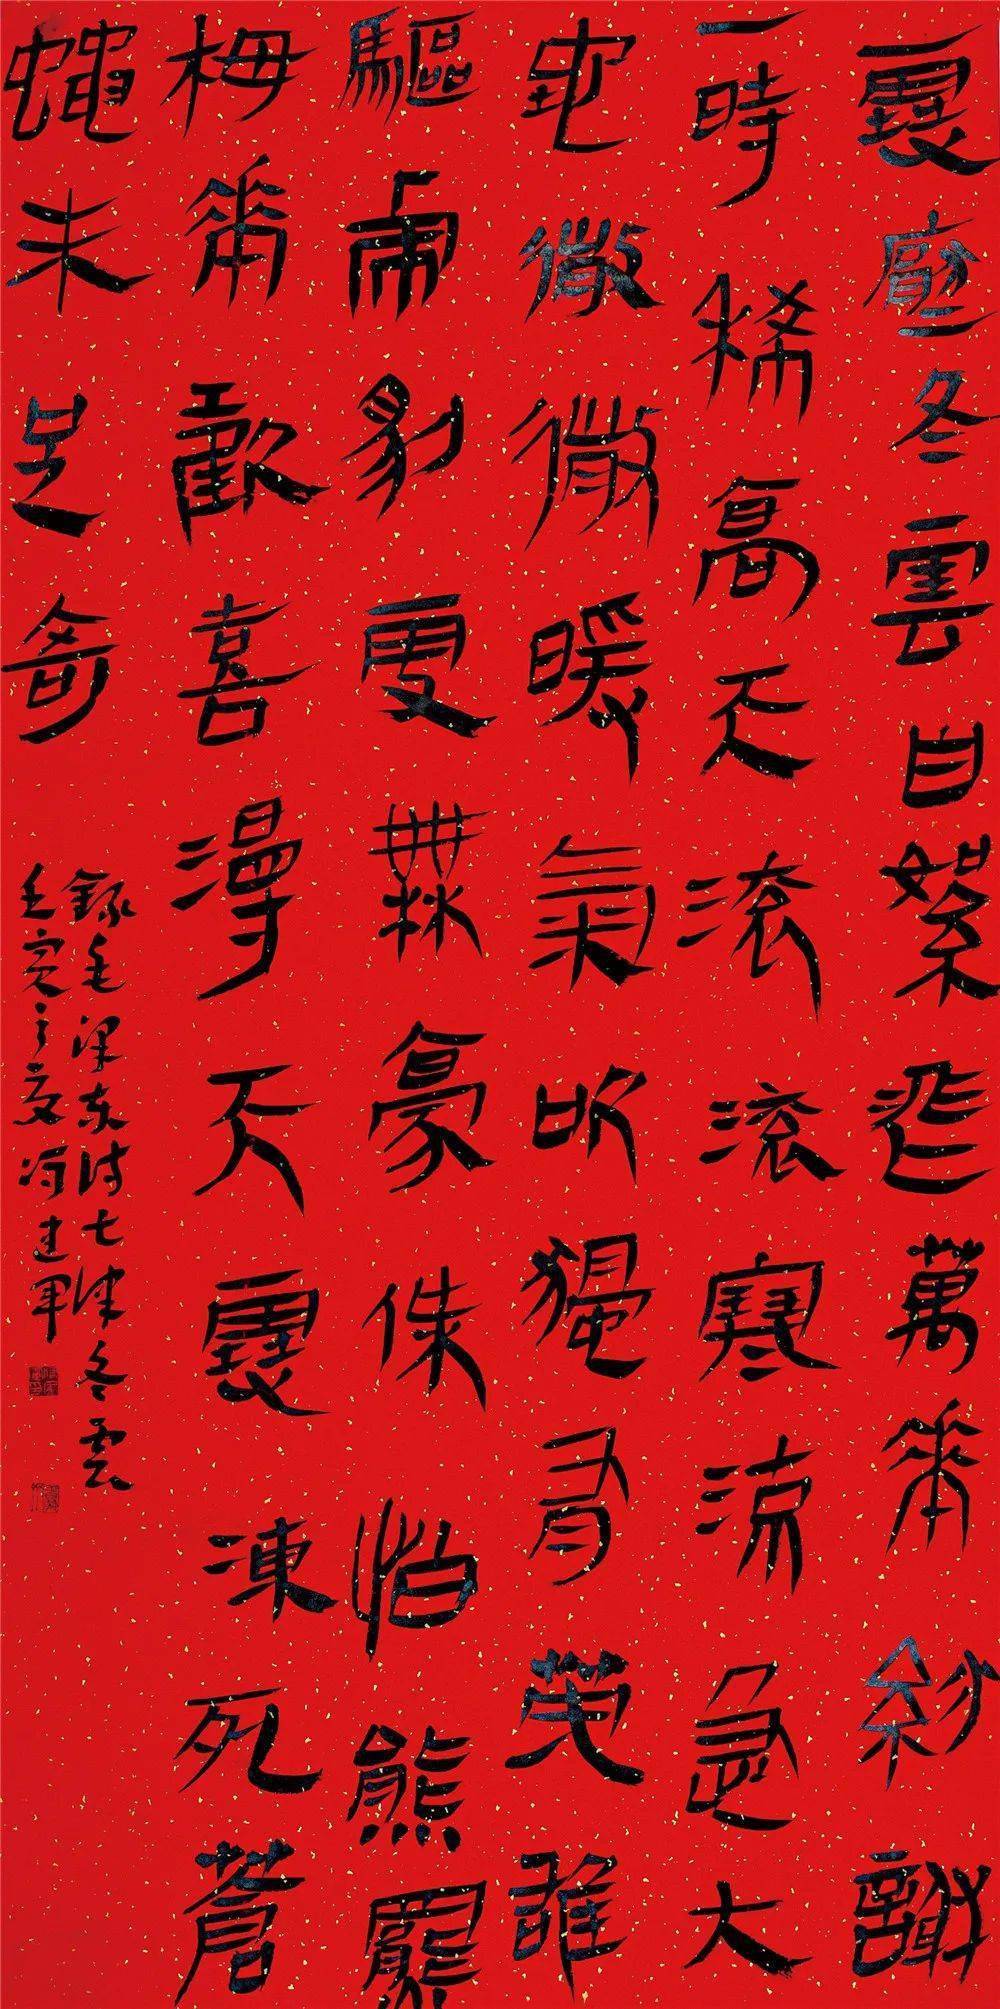 雪壓冬雲白絮飛萬花紛謝
一時稀高天滾滾寒流急大
地微微暖氣吹獨有英雄
驅虎豹更無豪傑怕熊羆
梅花歡喜漫天雪凍死蒼
蠅未足奇
錄毛澤東詩七律冬雲
壬寅之夏馮建軍